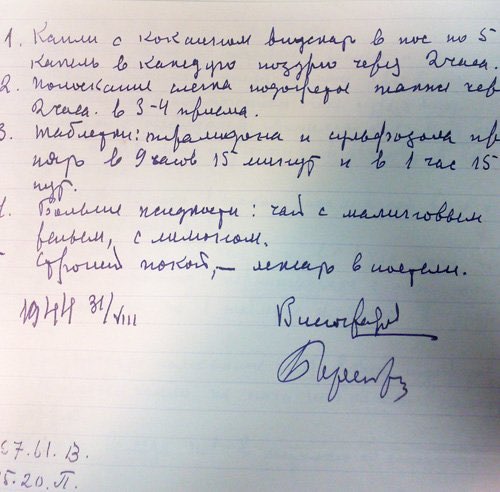 1. Капли с кокаином впускать в нос по 5
капель в каждую ноздрю через 2 часа.
2. Полоскание слегка подогретое также чер
2 часа. в 3-4 приема.
3. Таблетки: пирамидона и сульфазола при
нять в 9 часов 15 минут и в 1 час 15
нут.
4. Больше жидкости: чай с малиновым
реньем, с лимоном.
Строгий покой, – лежать в постели.
1944 31/VIII
Виноградов
57.61. В.
5.20. П.